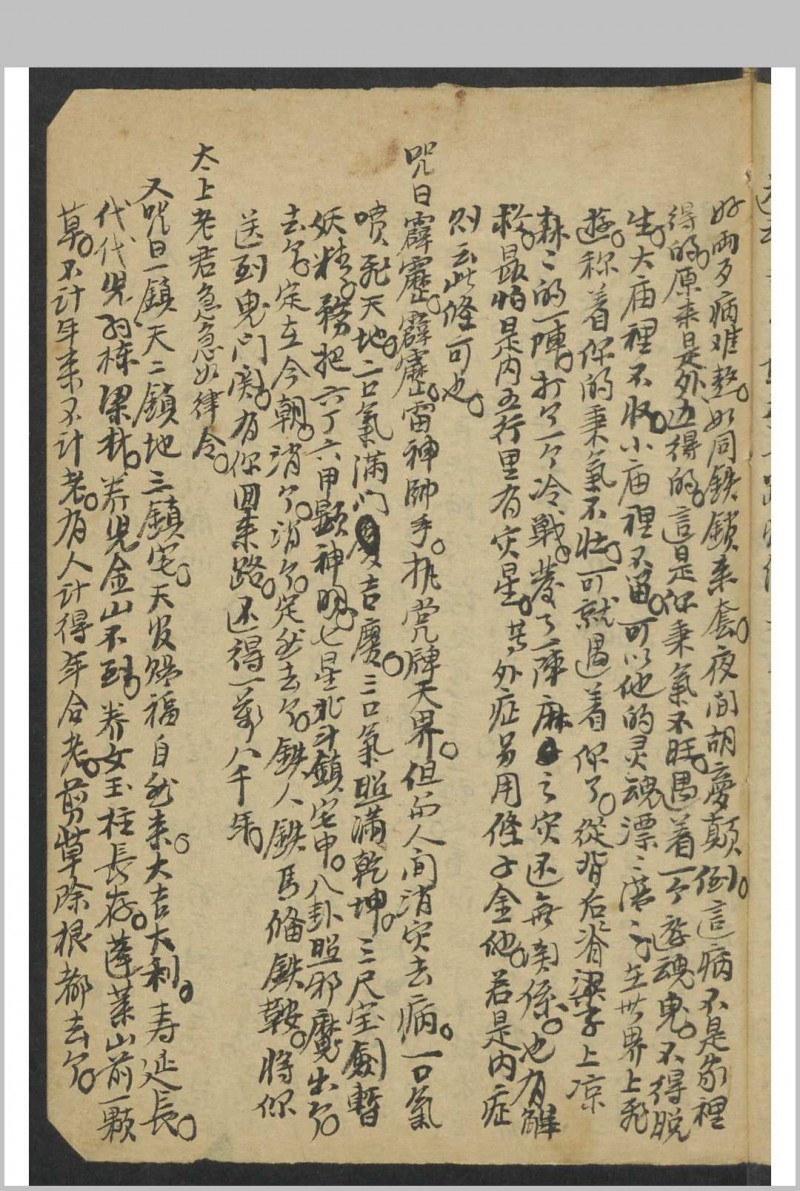 好両歹病难熬。如同鉄鎖来套。夜间胡夢顛倒。這病不是家裡
得的。原来是外边得的。這是你秉氣不旺。遇着一个遊魂鬼。不得脱
生。大庙裡不收。小庙裡不留。可以他的灵魂漂〻蕩〻在世界上飛
遊。称着你的秉氣不壮。可就遇着你了。從背后脊梁子上凉
森〻的一陣。打了一个冷戦。發了一陣麻之灾还無関係。也有解
救。最怕是内五行里有灾星。其外症另用條子金他。若是内症
则云此條可也。
咒曰霹靂。霹靂。雷神帥手。執党牌天界。但为人间消灾去病。一口氣
喷死天地。二口氣满门吉慶。三口氣照满乾坤。三尺宝劍暫
妖精。務把六丁六甲顕神明。七星北斗鎮宅中。八卦照邪魔出了。
去了。定在今朝。消了。消了。定然去了。鉄人鉄馬俻鉄鞍。将你
送到鬼门関。有你回来路。还得一萬八千年。
太上老君急急如律令。
又咒曰一鎮天二鎮地三鎮宅。天官赐福自然来。大吉大利。寿延長。
代代児孙棟梁材。养児金山不到。养女玉柱長存。蓬莱山前一颗
草。不计年来不计老。有人计得年合老。剪草除根都去了。